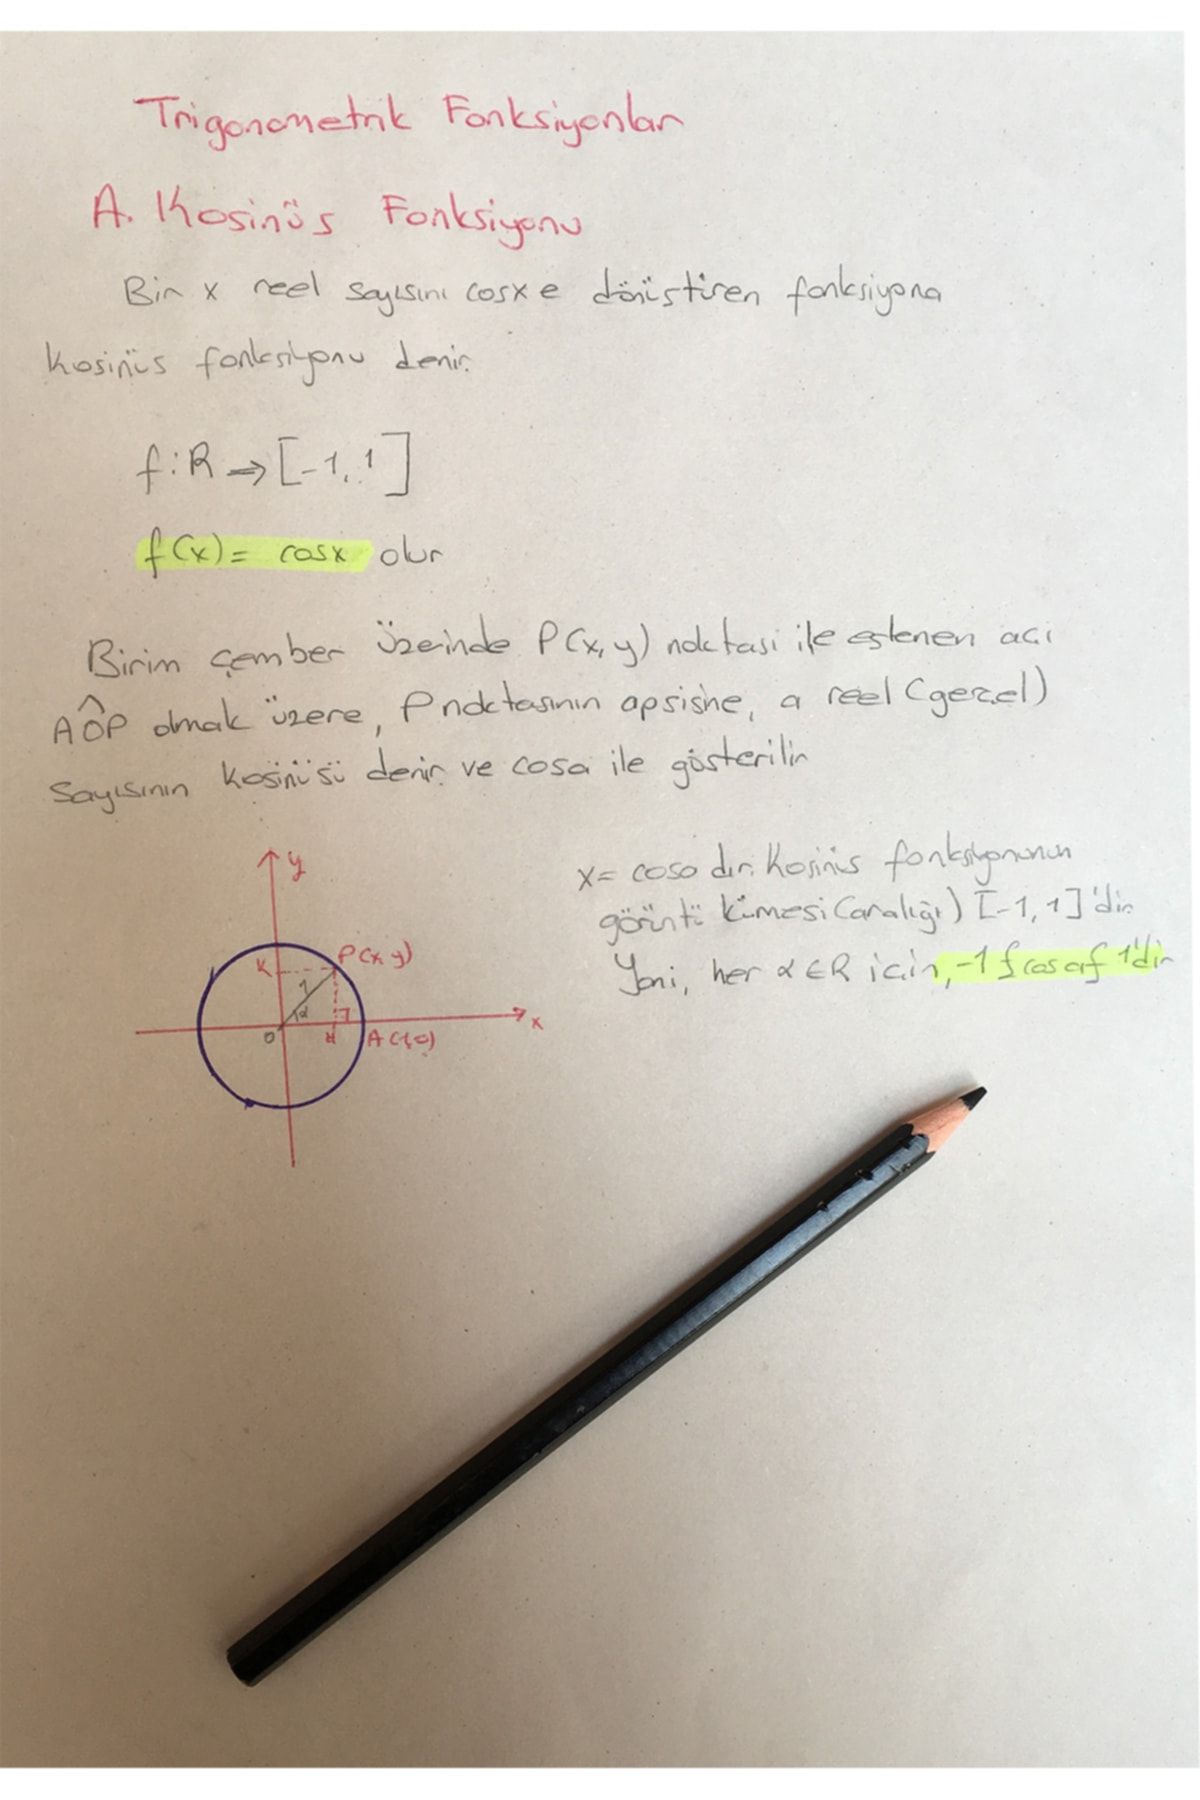 Trigonometrik Fonksiyonlar
A. Kosinüs Fonksiyonu
Bir x reel sayısını cosx e dönüştüren fonksiyona
kosinüs fonksiyonu denir.
f:R → [-1,1]
f(x) = cosx olur
Birim çember üzerinde P(x,y) noktasi ile eşlenen açı
AÔP olmak üzere, P noktasının apsisine, a reel (gerçel)
sayısının kosinüsü denir ve cosa ile gösterilir
y
x = cosa dır. Kosinüs fonksiyonunun
görüntü kümesi (aralığı) [-1,1]'dir.
K P(x,y)
Yani, her α ∈ R için, -1 ≤ cos α ≤ 1'dir
1
α
O H A(1,0) x